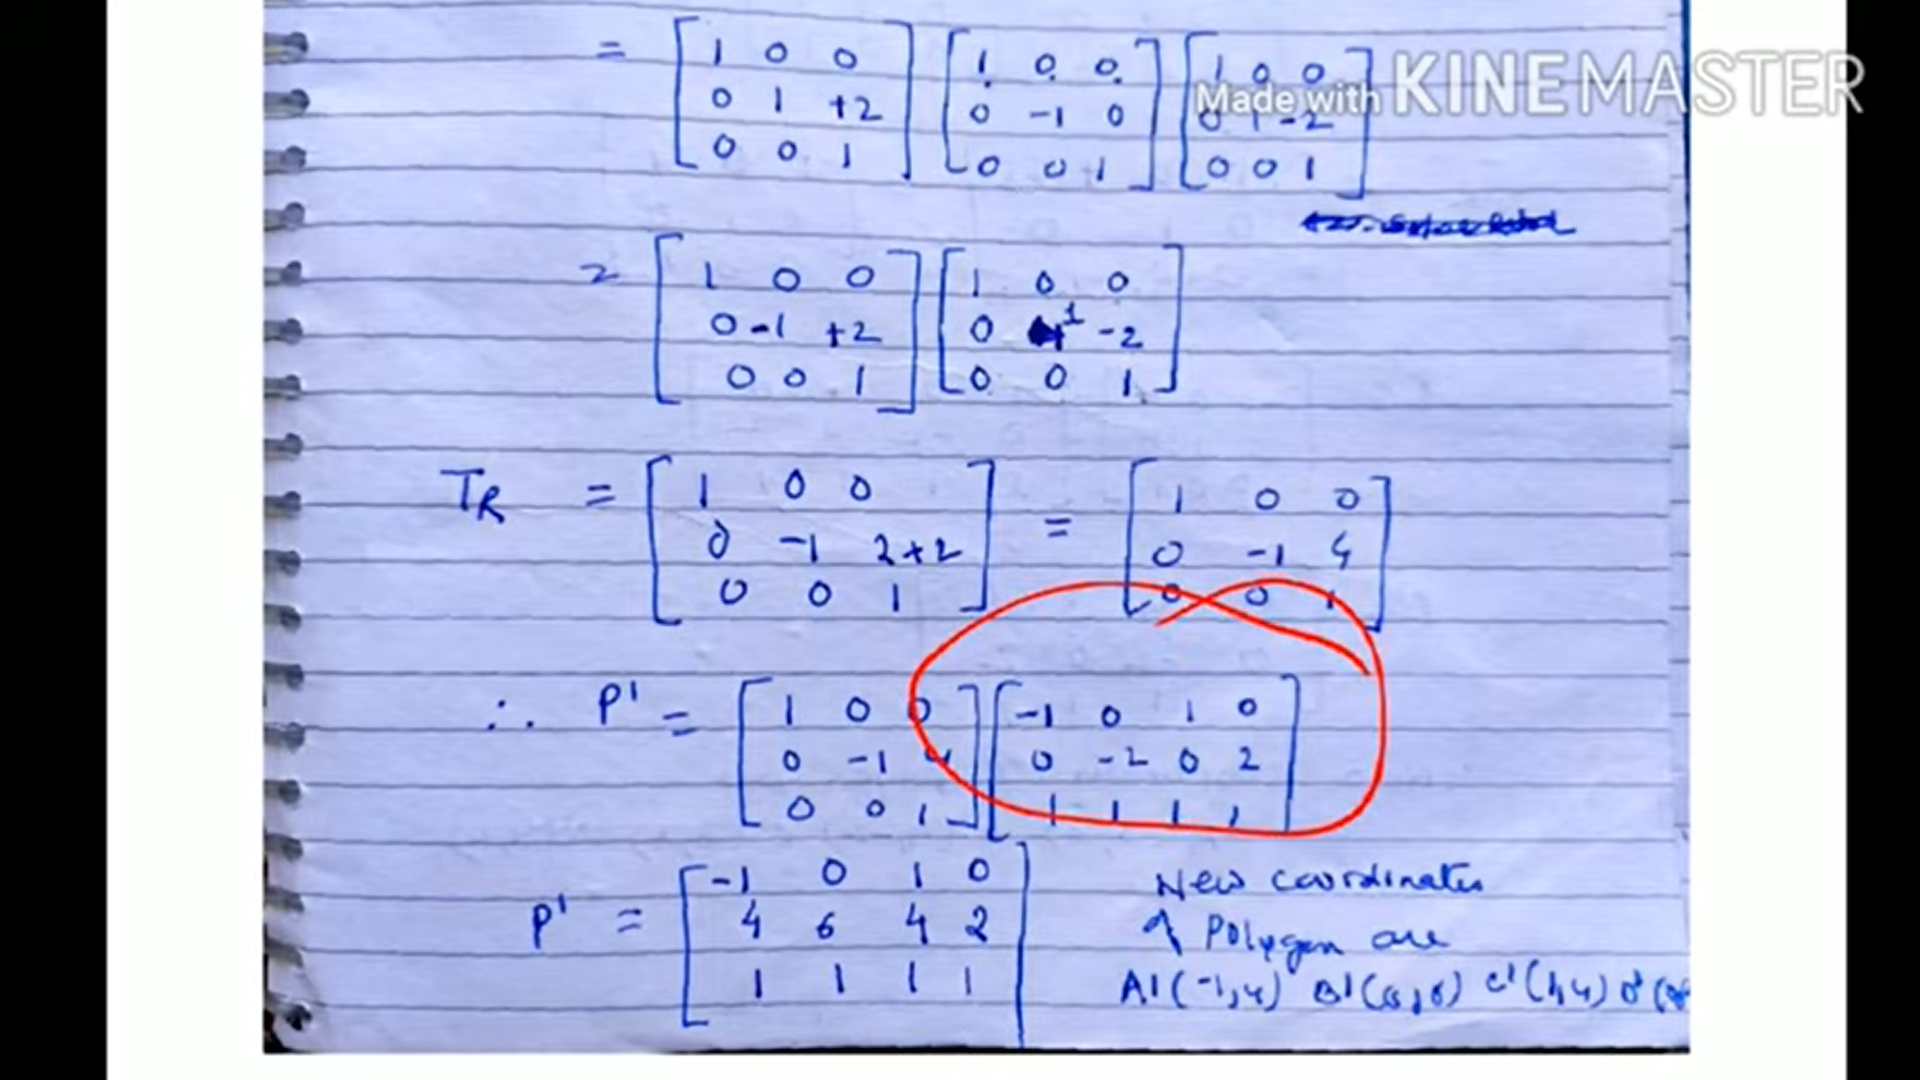 = [1 0 0] [1 0 0] [1 0 0]
[0 1 +2] [0 -1 0] [0 1 -2]
[0 0 1] [0 0 1] [0 0 1]
Made with KINEMASTER
= [1 0 0] [1 0 0]
[0 -1 +2] [0 1 -2]
[0 0 1] [0 0 1]
TR = [1 0 0] = [1 0 0]
[0 -1 2+2] [0 -1 4]
[0 0 1] [0 0 1]
∴ P' = [1 0 0] [-1 0 1 0]
[0 -1 4] [0 -2 0 2]
[0 0 1] [1 1 1 1]
P' = [-1 0 1 0]
[4 6 4 2]
[1 1 1 1]
New coordinates
of Polygon are
A1(-1,4) B1(0,6) C'(1,4) D'(